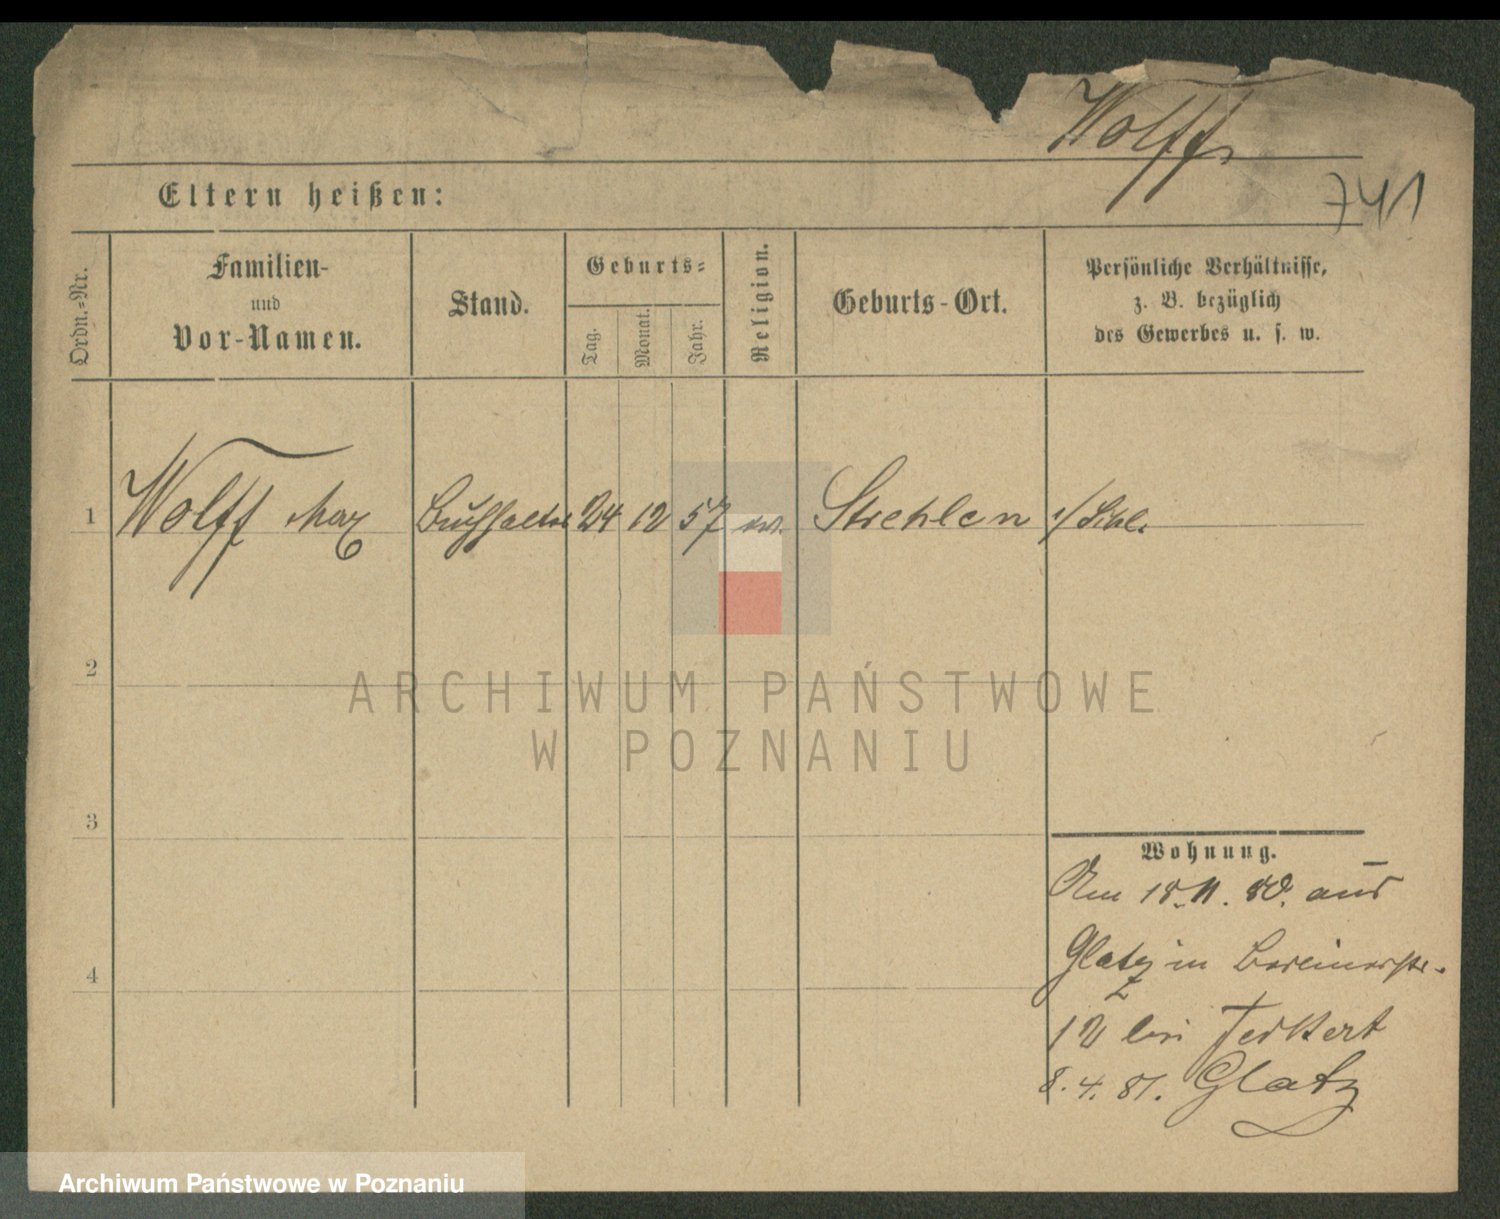 Wolff
741
Eltern heißen:
Ordn.-Nr.
Familien-
und
Vor-Namen.
Stand.
Geburts-
Tag.
Monat.
Jahr.
Religion.
Geburts-Ort.
Persönliche Verhältnisse,
z. B. bezüglich
des Gewerbes u. s. w.
1 Wolff Max Buchhalter 24 12 57 ev. Strehlen i/Schl.
2
3
4
Wohnung.
Am 18.11.80. aus
Glatz in Berlinerstr.
12 bei
8.4.81. Glatz
ARCHIWUM PAŃSTWOWE
W POZNANIU
Archiwum Państwowe w Poznaniu